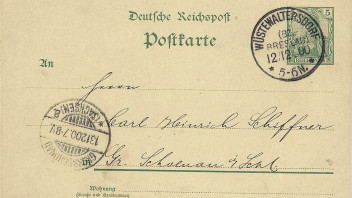 Deutsche Reichspost
Postkarte
5
WÜSTEWALTERSDORF
(BZ. BRESLAU)
12.12.00
* 5-6N. *
An
Herrn
Carl Heinrich Schiffner
(SACHSEN)
13.12.00.7-8V.
Gr. Schoenau i/
Wohnung